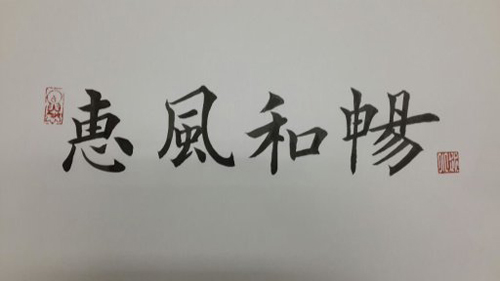 恵風和暢